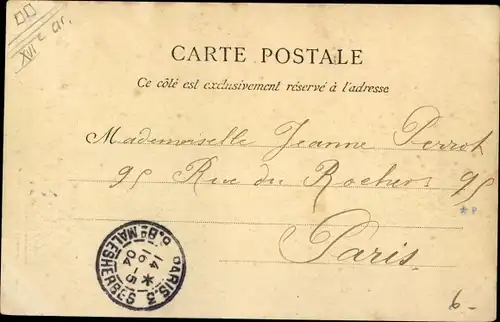 XVIe ar.
CARTE POSTALE
Ce côté est exclusivement réservé à l'adresse
Mademoiselle Jeanne Perrot
95 Rue du Rochers 95
Paris
PARIS.3
B.D MALESHERBES
14 *
16 - 5
04
6-